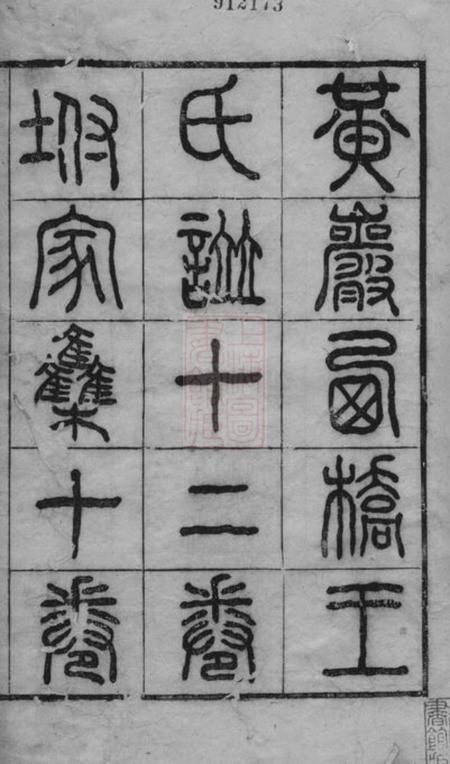 912173
黃巖西橋王
氏譜十二卷
坿家集十卷